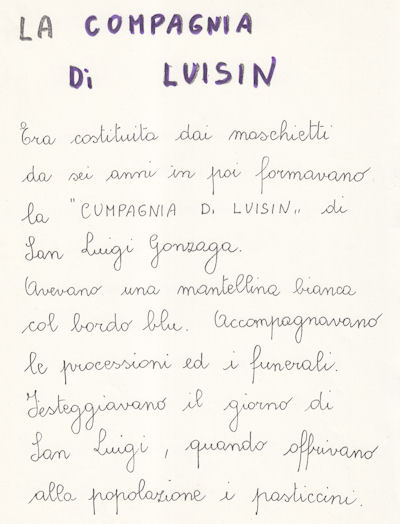 LA COMPAGNIA
Di LUISIN
Era costituita dai maschietti
da sei anni in poi formavano
la "CUMPAGNIA Di LUISIN" di
San Luigi Gonzaga.
Avevano una mantellina bianca
col bordo blu. Accompagnavano
le processioni ed i funerali.
Festeggiavano il giorno di
San Luigi, quando offrivano
alla popolazione i pasticcini.